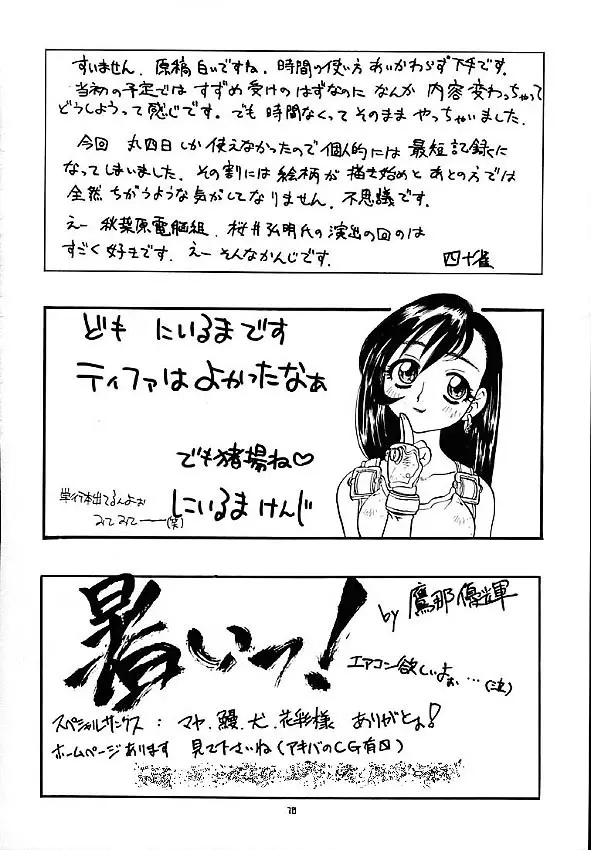 すいません、原稿白いですね、時間の使い方あいかわらず下手です。
当初の予定ではすずめ受けのはずなのになんか内容変わっちゃって
どうしようって感じです。でも時間なくってそのままやっちゃいました。
今回丸四日しか使えなかったので個人的には最短記録に
なってしまいました。その割には絵柄が描き始めとあとの方では
全然ちがうような気がしてなりません。不思議です。
えー秋葉原電脳組、桜井弘明氏の演出の回のは
すごく好きです。えーそんなかんじです。
四十雀
ども にいるまです
ティファはよかったなぁ
でも猪場ね♡
単行本出てるんよぉ
みてみてー(笑)
にいるまけんじ
暑いっ!
by 鷹那優輝
エアコン欲しいよぉ…(泣)
スペシャルサンクス:マヤ、鰻、犬、花彩様 ありがとよ!
ホームページあります 見て下さいね(アキバのCG有口)
78